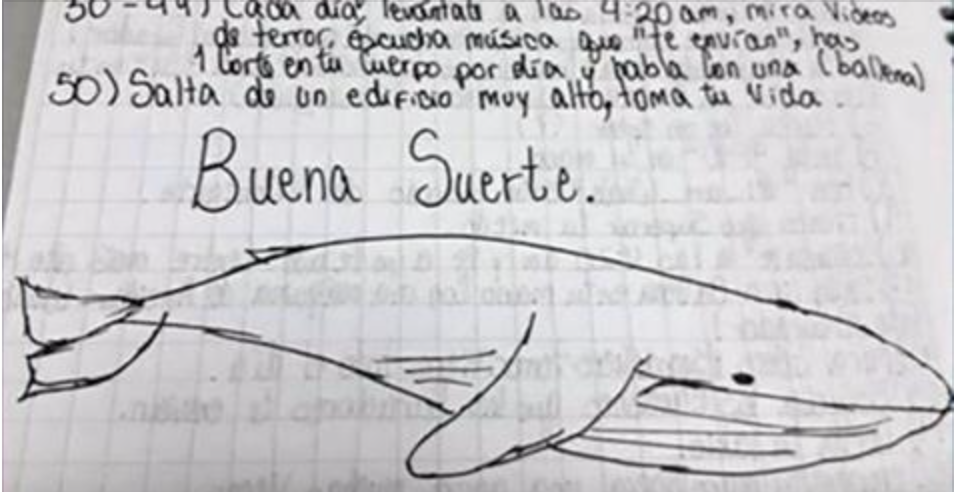 30-49) Cada día, levántate a las 4:20am, mira videos
de terror, escucha música que "te envían", has
1 corte en tu cuerpo por día y habla con una (ballena)
50) Salta de un edificio muy alto, toma tu vida.
Buena Suerte.